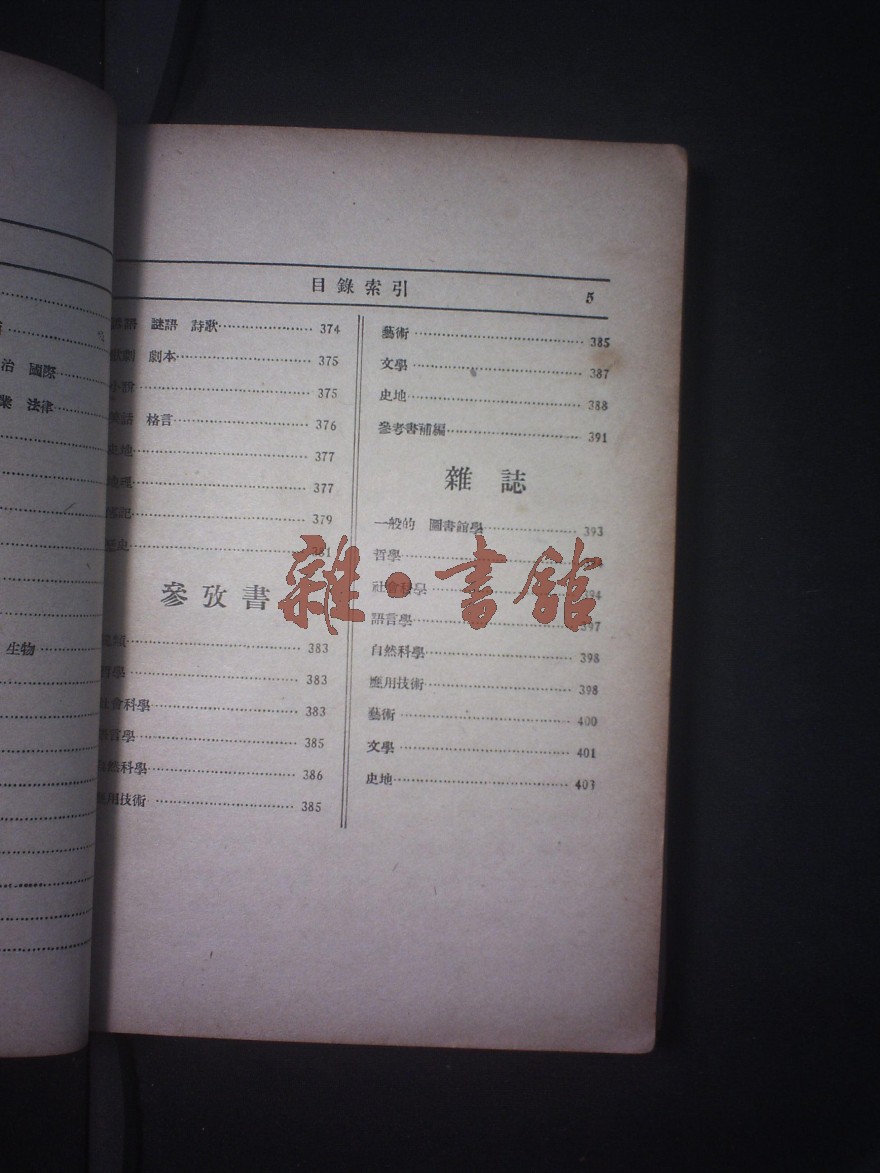 目錄索引 5
謎語 詩歌 374
劇本 375
375
格言 376
史地 377
地理 377
379
381
參攷書
383
哲學 383
社會科學 383
語言學 385
自然科學 386
應用技術 385
藝術 385
文學 387
史地 388
參考書補編 391
雜誌
一般的 圖書館學 393
哲學
社會科學 394
語言學 397
自然科學 398
應用技術 398
藝術 400
文學 401
史地 403
雜·書館
治 國際
業 法律
生物